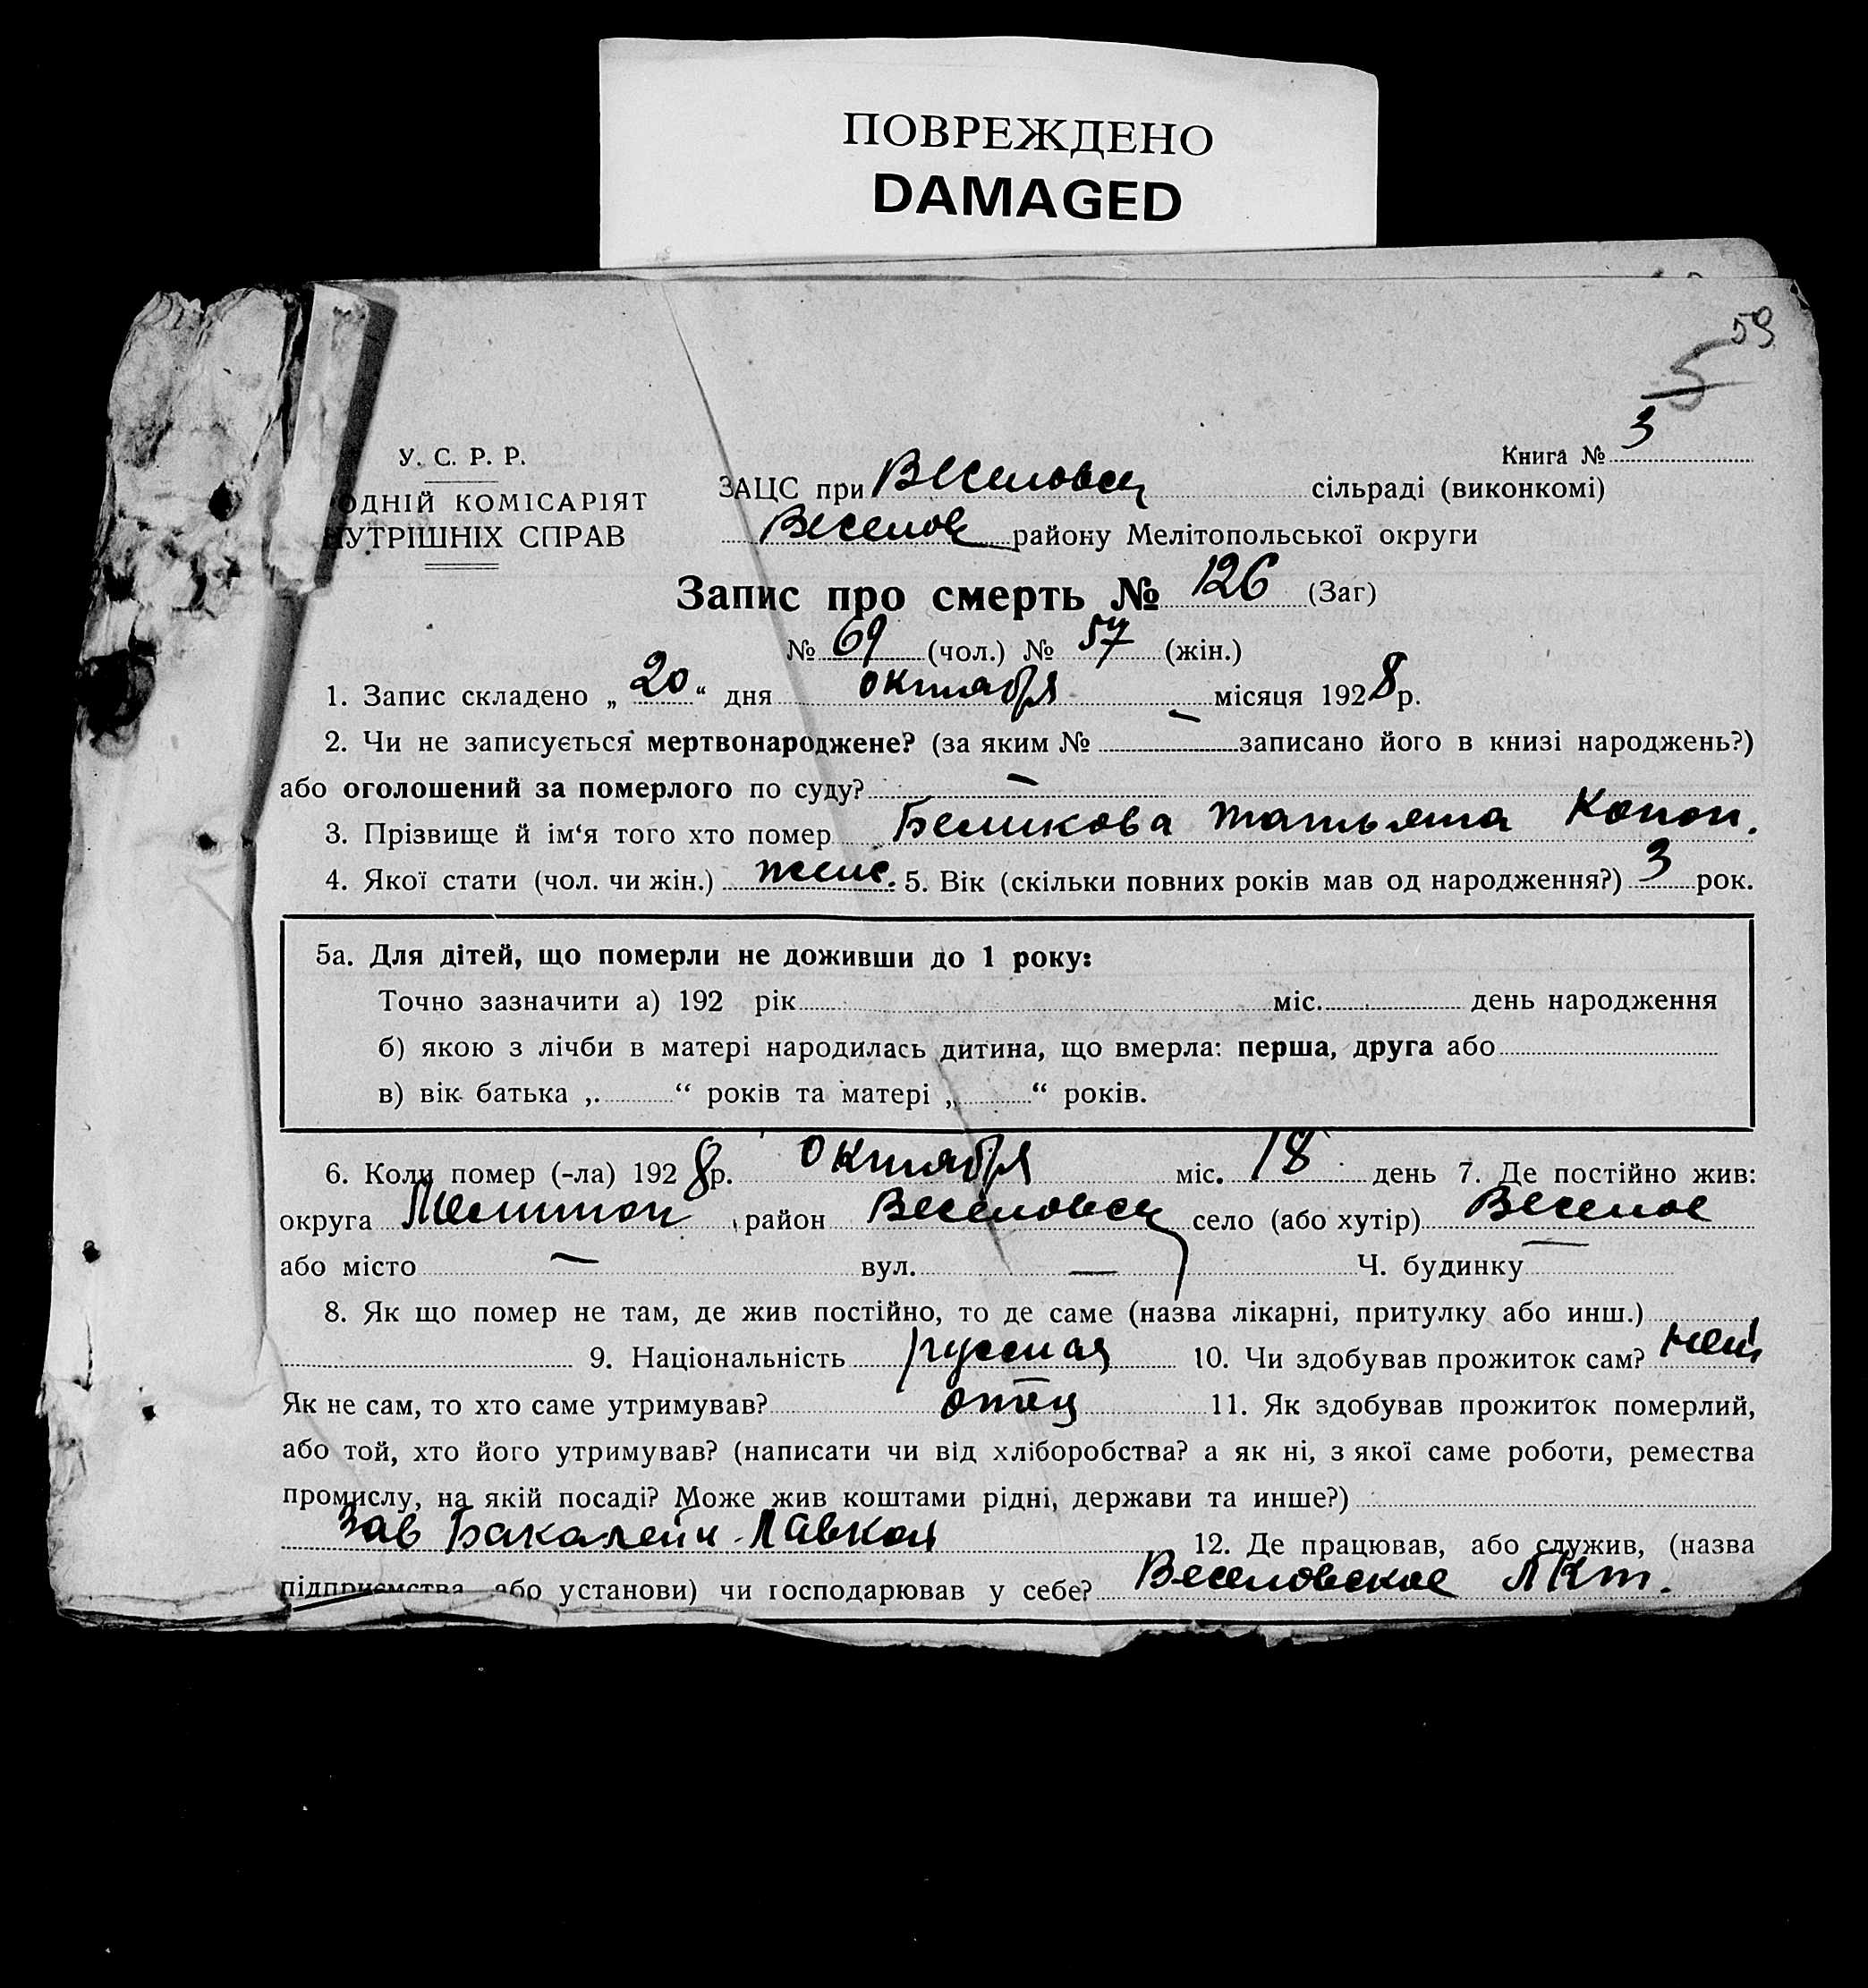 ПОВРЕЖДЕНО
DAMAGED
59
5
Книга № 3
У. С. Р. Р.
ОДНІЙ КОМІСАРІЯТ
НУТРІШНІХ СПРАВ
ЗАЦС при Веселовск сільраді (виконкомі)
Веселов району Мелітопольської округи
Запис про смерть № 126 (Заг)
№ 69 (чол.) № 57 (жін.)
1. Запис складено „ 20 “ дня октября місяця 1928 р.
2. Чи не записується мертвонароджене? (за яким № — записано його в книзі народжень?)
або оголошений за померлого по суду? —
3. Прізвище й ім‘я того хто помер Беликова Татьяна Конон.
4. Якої стати (чол. чи жін.) женс. 5. Вік (скільки повних років мав од народження?) 3 рок.
5а. Для дітей, що померли не доживши до 1 року:
Точно зазначити а) 192 рік міс. день народження
б) якою з лічби в матері народилась дитина, що вмерла: перша, друга або
в) вік батька „ “ років та матері „ “ років.
6. Коли помер (-ла) 1928 р. октября міс. 18 день 7. Де постійно жив:
округа Мелитоп район Веселовск село (або хутір) Веселое
або місто — вул. — Ч. будинку —
8. Як що помер не там, де жив постійно, то де саме (назва лікарні, притулку або инш.)
9. Національність русская 10. Чи здобував прожиток сам? нет
Як не сам, то хто саме утримував? отец 11. Як здобував прожиток померлий,
або той, хто його утримував? (написати чи від хліборобства? а як ні, з якої саме роботи, ремества
промислу, на якій посаді? Може жив коштами рідні, держави та инше?)
Зав Бакалейн. Лавкой 12. Де працював, або служив, (назва
підприємства або установи) чи господарював у себе? Веселовское